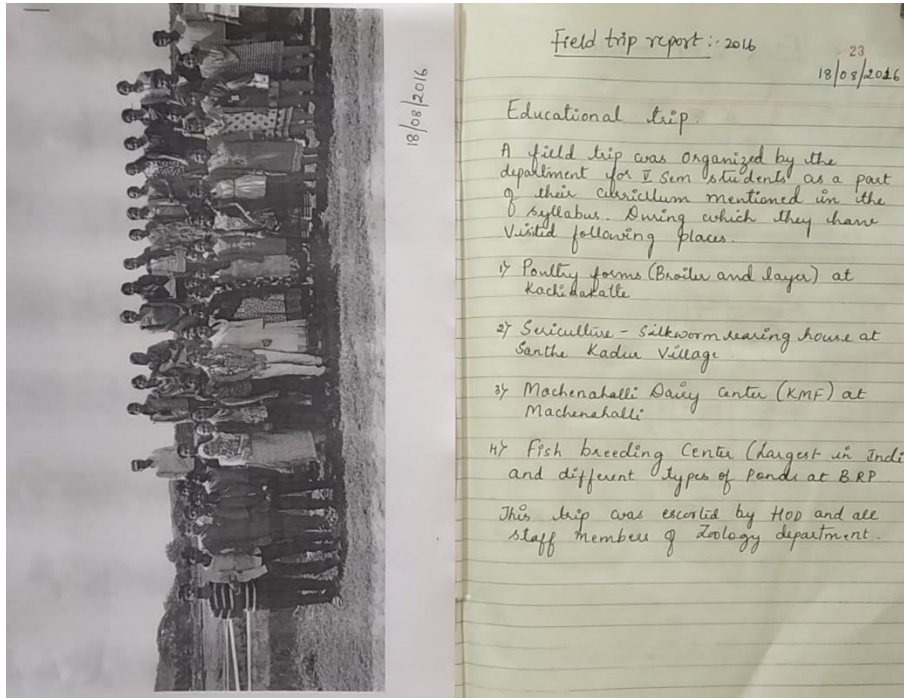 18/08/2016
Field trip report :- 2016
23
18/08/2016
Educational trip.
A field trip was organized by the
department for V Sem students as a part
of their curricllum mentioned in the
syllabus. During which they have
Visited following places.
1) Poultry forms (Broiler and layer) at
Kachinakatte
2) Sericulture - Silkworm rearing house at
Santhe Kadur Village.
3) Machenahalli Dairy Center (KMF) at
Machenahalli
4) Fish breeding Center (Largest in Indi
and different types of Ponds at B.R.P
This trip was escorted by HOD and all
staff members of Zoology department.